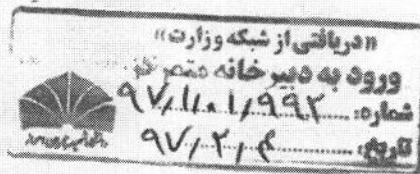 «دریافتی از شبکه وزارت»
ورود به دبیرخانه متمرکز
شماره: ۹۷/۱۱۰۱/۹۹۲
تاریخ: ۹۷/۲/۴